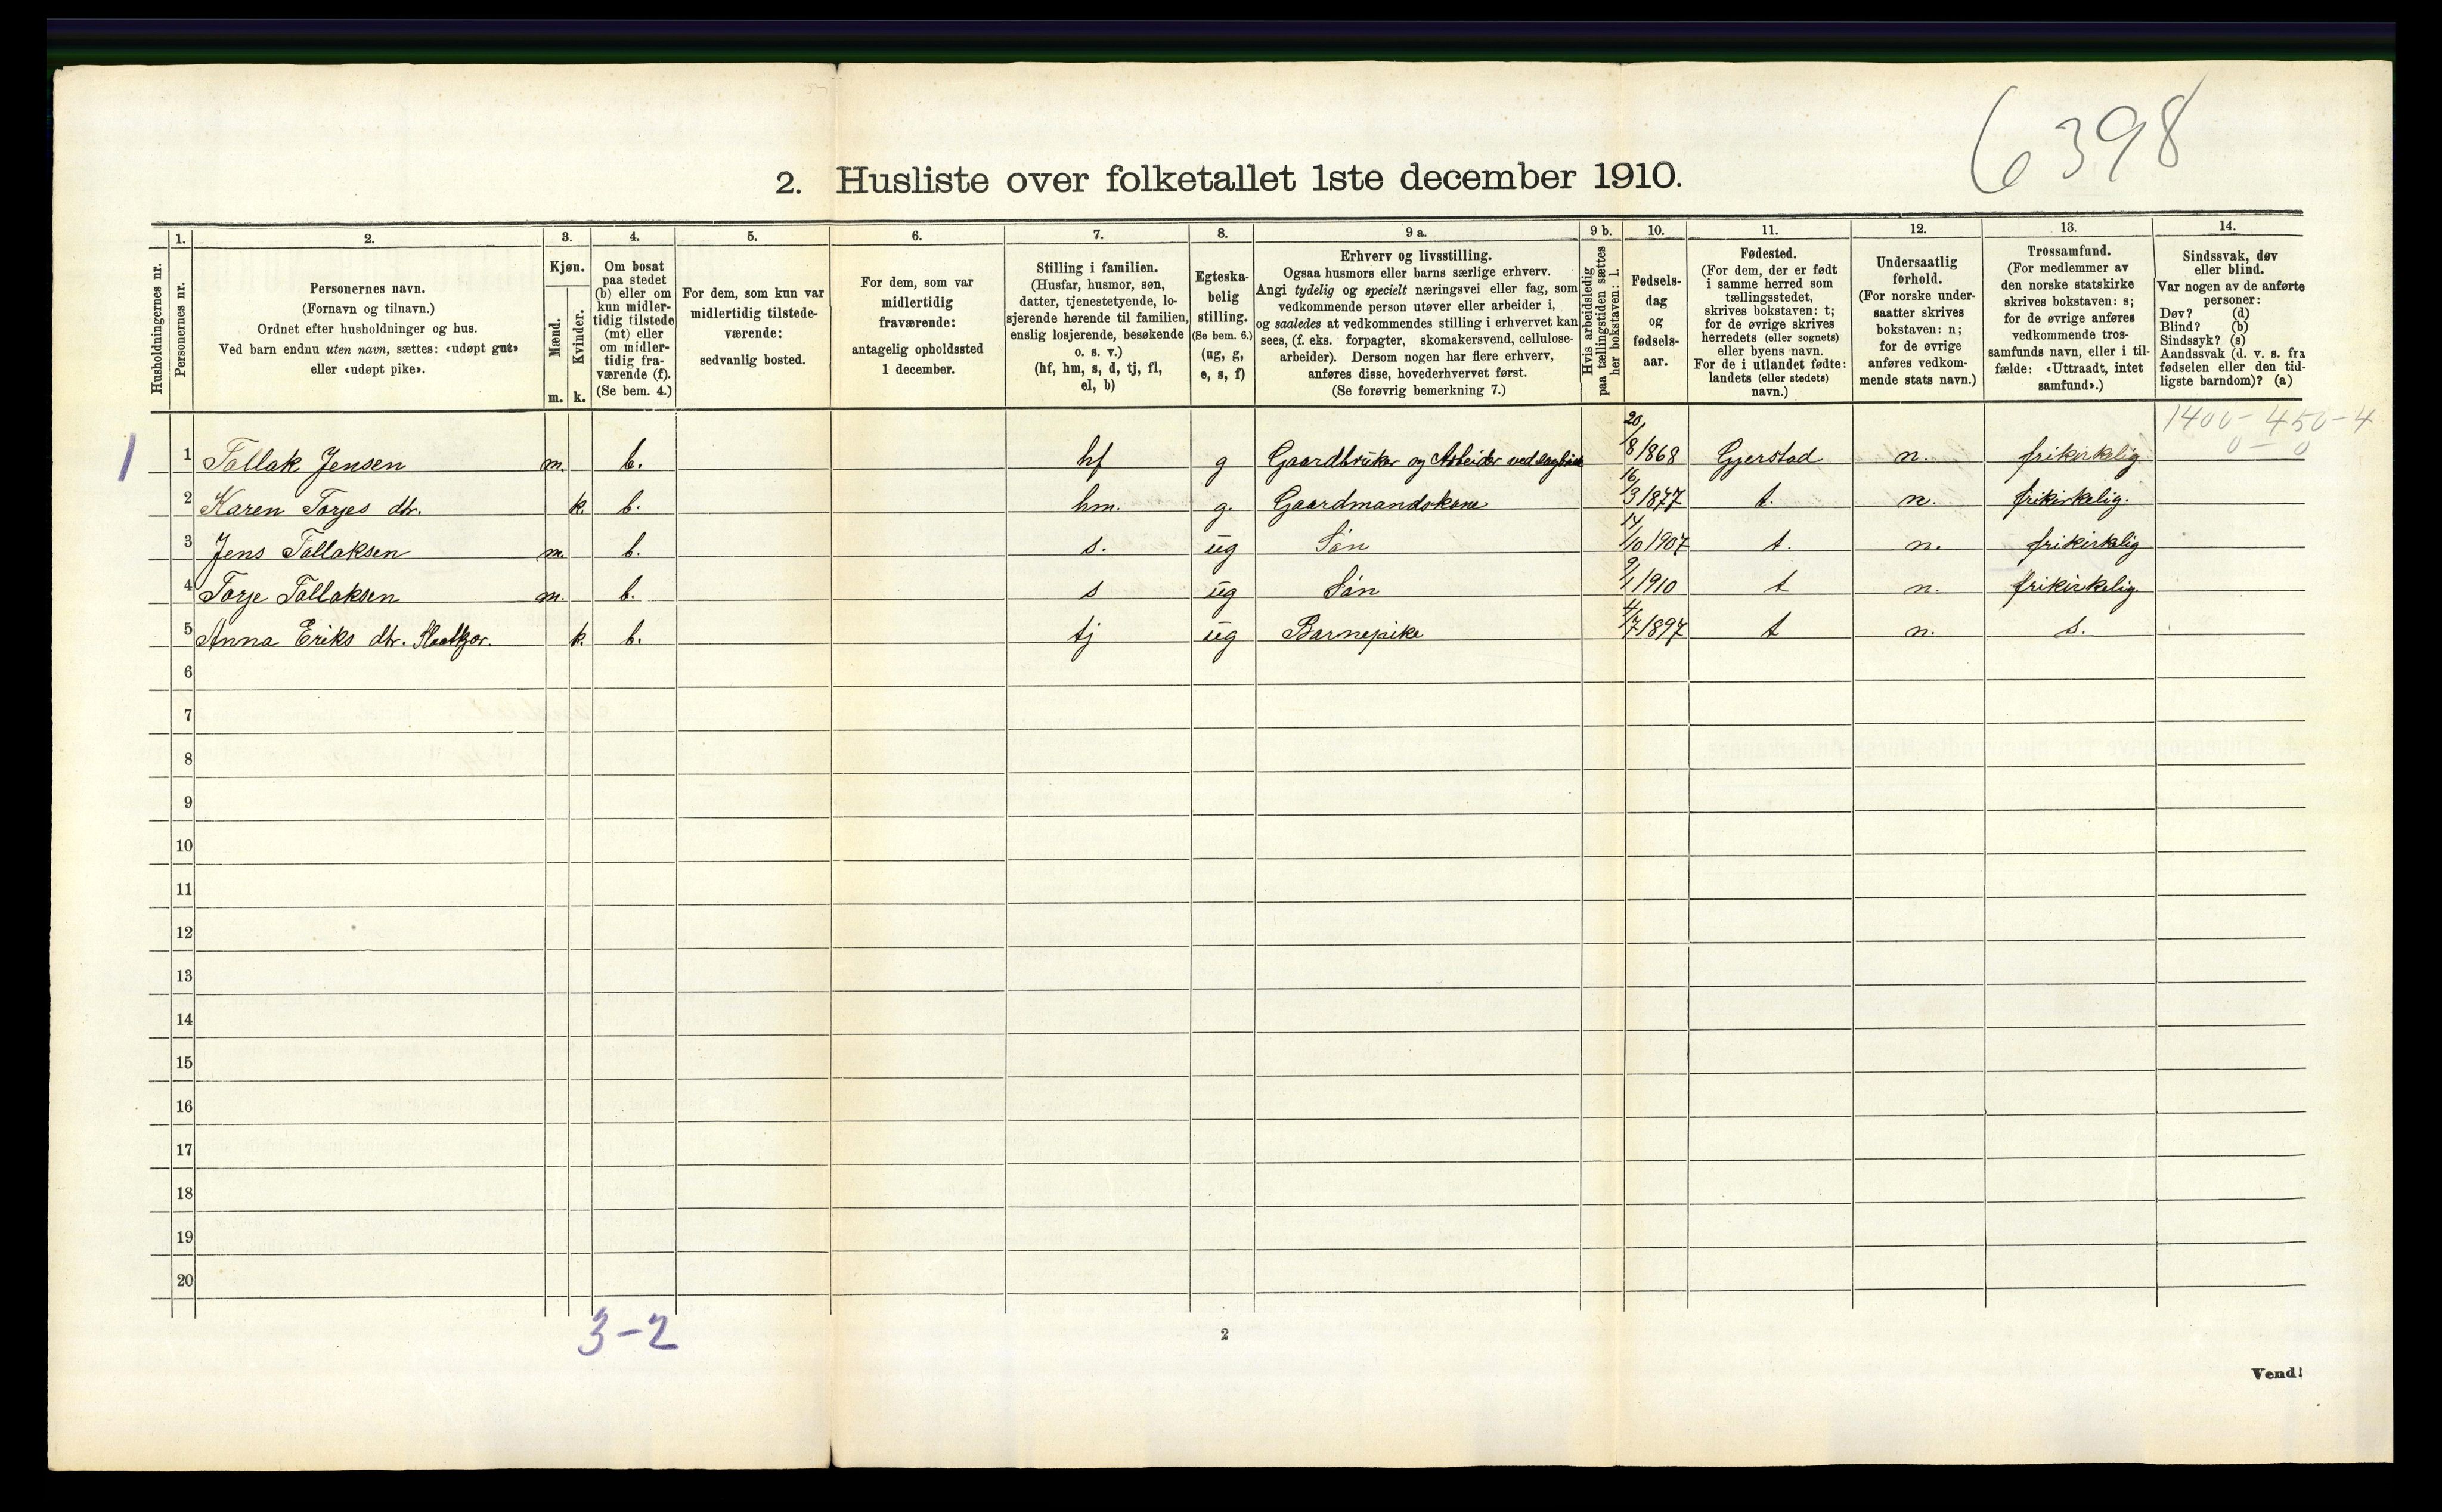 6398
2. Husliste over folketallet 1ste december 1910.
Husholdningernes nr.
1.
Personernes nr.
2.
Personernes navn.
(Fornavn og tilnavn.)
Ordnet efter husholdninger og hus.
Ved barn endnu uten navn, sættes: «udøpt gut»
eller «udøpt pike».
3.
Kjøn.
Mænd.
Kvinder.
m. k.
4.
Om bosat
paa stedet
(b) eller om
kun midler-
tidig tilstede
(mt) eller
om midler-
tidig fra-
værende (f).
(Se bem. 4.)
5.
For dem, som kun var
midlertidig tilstede-
værende:
sedvanlig bosted.
6.
For dem, som var
midlertidig
fraværende:
antagelig opholdssted
1 december.
7.
Stilling i familien.
(Husfar, husmor, søn,
datter, tjenestetyende, lo-
sjerende hørende til familien,
enslig losjerende, besøkende
o. s. v.)
(hf, hm, s, d, tj, fl,
el, b)
8.
Egteska-
belig
stilling.
(Se bem. 6.)
(ug, g,
e, s, f)
9 a.
Erhverv og livsstilling.
Ogsaa husmors eller barns særlige erhverv.
Angi tydelig og specielt næringsvei eller fag, som
vedkommende person utøver eller arbeider i,
og saaledes at vedkommendes stilling i erhvervet kan
sees, (f. eks. forpagter, skomakersvend, cellulose-
arbeider). Dersom nogen har flere erhverv,
anføres disse, hovederhvervet først.
(Se forøvrig bemerkning 7.)
9 b.
Hvis arbeidsledig
paa tællingstiden sættes
her bokstaven: l.
10.
Fødsels-
dag
og
fødsels-
aar.
11.
Fødested.
(For dem, der er født
i samme herred som
tællingsstedet,
skrives bokstaven: t;
for de øvrige skrives
herredets (eller sognets)
eller byens navn.
For de i utlandet fødte:
landets (eller stedets)
navn.)
12.
Undersaatlig
forhold.
(For norske under-
saatter skrives
bokstaven: n;
for de øvrige
anføres vedkom-
mende stats navn.)
13.
Trossamfund.
(For medlemmer av
den norske statskirke
skrives bokstaven: s;
for de øvrige anføres
vedkommende tros-
samfunds navn, eller i til-
fælde: «Uttraadt, intet
samfund».)
14.
Sindssvak, døv
eller blind.
Var nogen av de anførte
personer:
Døv? (d)
Blind? (b)
Sindssyk? (s)
Aandssvak (d. v. s. fra
fødselen eller den tid-
ligste barndom)? (a)
1400 - 450 - 4
0 — 0
1 1 Tallak Jensen m. b. hf g Gaardbruker og Arbeider ved sagbruk 20/8 1868 Gjerstad n. frikirkelig
2 Karen Torjes dtr. k. b. hm. g. Gaardmandskone 16/3 1877 t. n. frikirkelig.
3 Jens Tallaksen m. b. s. ug Søn 14/10 1907 t. n. frikirkelig
4 Torje Tallaksen m. b. s ug Søn 9/1 1910 t n. frikirkelig.
5 Anna Eriks dtr. k. b. tj ug Barnepike 4/7 1897 t n. s.
6
7
8
9
10
11
12
13
14
15
16
17
18
19
20
3-2
2
Vend!